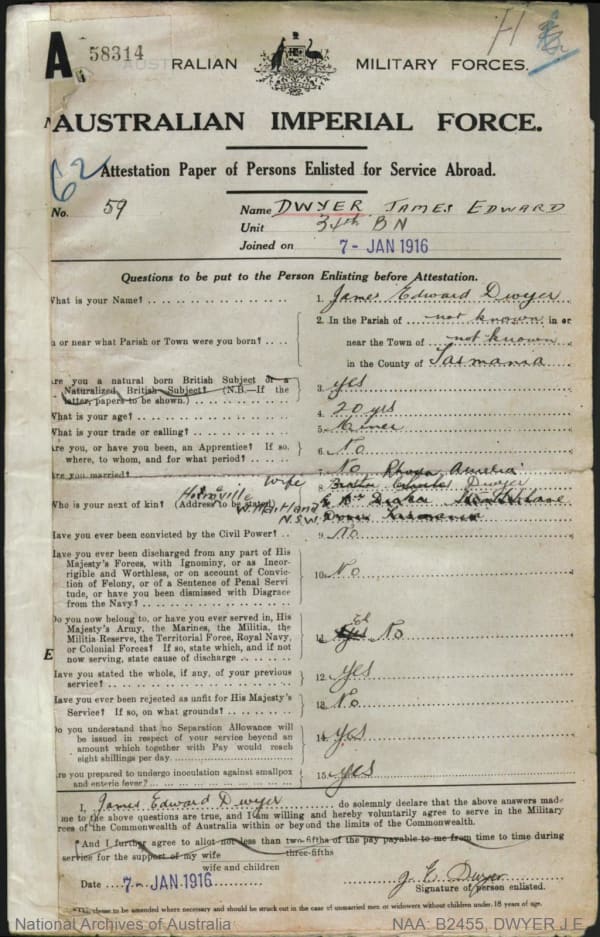 A
58314
AUSTRALIAN MILITARY FORCES.
AUSTRALIAN IMPERIAL FORCE.
62
Attestation Paper of Persons Enlisted for Service Abroad.
No. 59 Name DWYER JAMES EDWARD
Unit 34th BN
Joined on 7- JAN 1916
Questions to be put to the Person Enlisting before Attestation.
What is your Name? 1. James Edward Dwyer
2. In the Parish of not known in or
n or near what Parish or Town were you born? near the Town of not known
in the County of Tasmania
Are you a natural born British Subject or a
Naturalized British Subject? (N.B.—If the 3. yes
latter, papers to be shown.)
What is your age? 4. 20 yrs
What is your trade or calling? 5. Miner
Are you, or have you been, an Apprentice? If so, 6. No
where, to whom, and for what period?
Are you married? 7. No
wife Rhoda Amelia
8. Brother Charles Dwyer
Who is your next of kin? (Address to be stated)
Homeville
W. Maitland
N.S.W. Tasmania
Have you ever been convicted by the Civil Power? 9. No
Have you ever been discharged from any part of His
Majesty's Forces, with Ignominy, or as Incor-
rigible and Worthless, or on account of Convic-
tion of Felony, or of a Sentence of Penal Servi- 10. No
tude, or have you been dismissed with Disgrace
from the Navy?
Do you now belong to, or have you ever served in, His
Majesty's Army, the Marines, the Militia, the
Militia Reserve, the Territorial Force, Royal Navy, 11. No
or Colonial Forces? If so, state which, and if not
now serving, state cause of discharge
E
Have you stated the whole, if any, of your previous 12. yes
service?
Have you ever been rejected as unfit for His Majesty's 13. No
Service? If so, on what grounds?
Do you understand that no Separation Allowance will
be issued in respect of your service beyond an 14. yes
amount which together with Pay would reach
eight shillings per day.
Are you prepared to undergo inoculation against smallpox 15. yes
and enteric fever?
I, James Edward Dwyer do solemnly declare that the above answers made
me to the above questions are true, and I am willing and hereby voluntarily agree to serve in the Military
rces of the Commonwealth of Australia within or beyond the limits of the Commonwealth.
*And I further agree to allot not less than two-fifths of the pay payable to me from time to time during
three-fifths
service for the support of my wife
wife and children
Date 7- JAN 1916 J E Dwyer
Signature of person enlisted.
*This clause to be amended where necessary and should be struck out in the case of unmarried men or widowers without children under 18 years of age.
National Archives of Australia NAA: B2455, DWYER J E